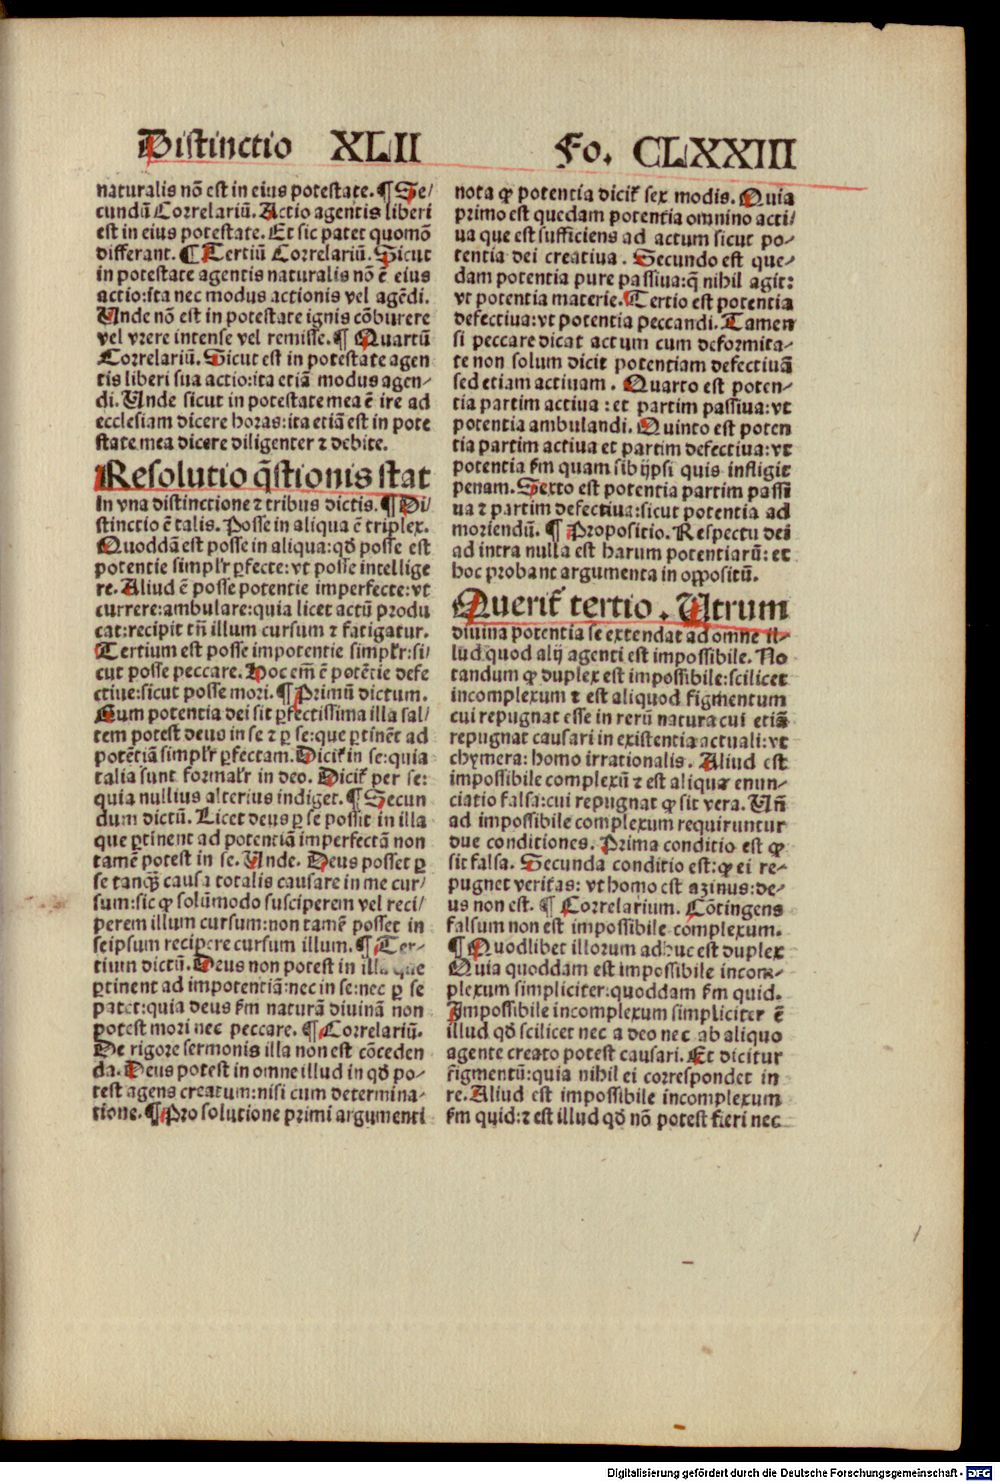 Distinctio XLII Fo. CLXXIII
naturalis nõ est in eius potestate. ¶ Se/
cundũ Correlariũ. Actio agentis liberi
est in eius potestate. Et sic patet quomõ
differant. ¶ Tertiũ Correlariũ. Sicut
in potestate agentis naturalis nõ ẽ eius
actio:ita nec modus actionis vel agẽdi.
Unde nõ est in potestate ignis cõburere
vel vrere intense vel remisse. ¶ Quartũ
Correlariũ. Sicut est in potestate agen
tis liberi sua actio:ita etiã modus agen-
di. Unde sicut in potestate mea ẽ ire ad
ecclesiam dicere horas:ita etiã est in pote
state mea dicere diligenter ⁊ debite.
Resolutio q̃stionis stat
in vna distinctione ⁊ tribus dictis. ¶ Di/
stinctio ẽ talis. Posse in aliqua ẽ triplex.
Quoddã est posse in aliqua:qđ posse est
potentie simplr̃ ꝑfecte:vt posse intellige
re. Aliud ẽ posse potentie imperfecte:vt
currere:ambulare:quia licet actũ produ
cat:recipit tñ illum cursum ⁊ fatigatur.
Tertium est posse impotentie simplr̃:si/
cut posse peccare. Hoc em̃ ẽ potẽtie defe
ctiue:sicut posse mori. ¶ Primũ dictum.
Cum potentia dei sit ꝑfectissima illa sal/
tem potest deus in se ⁊ ꝑ se:que ꝑtinẽt ad
potẽtiã simplr̃ ꝑfectam. Dicit᷑ in se:quia
talia sunt formalr̃ in deo. Dicit᷑ per se:
quia nullius alterius indiget. ¶ Secun
dum dictũ. Licet deus ꝑ se possit in illa
que ꝑtinent ad potentiã imperfectã non
tamẽ potest in se. Unde. Deus posset ꝑ
se tanq̃ꝫ causa totalis causare in me cur/
sum:sic ꝙ solũmodo susciperem vel reci/
perem illum cursum:non tamẽ posset in
seipsum recipere cursum illum. ¶ Ter-
tium dictũ. Deus non potest in illa que
ꝑtinent ad impotentiã:nec in se:nec ꝑ se
patet:quia deus ẜm naturã diuinã non
potest mori nec peccare. ¶ Correlariũ.
De rigore sermonis illa non est cõceden
da. Deus potest in omne illud in qđ po-
test agens creatum:nisi cum determina-
tione. ¶ Pro solutione primi argumenti
nota ꝙ potentia dicit᷑ sex modis. Quia
primo est quedam potentia omnino acti/
ua que est sufficiens ad actum sicut po-
tentia dei creatiua. Secundo est que-
dam potentia pure passiua:q̃ nihil agit:
vt potentia materie. Tertio est potentia
defectiua:vt potentia peccandi. Tamen
si peccare dicat actum cum deformita-
te non solum dicit potentiam defectiuã
sed etiam actiuam. Quarto est poten-
tia partim actiua : et partim passiua:vt
potentia ambulandi. Quinto est poten
tia partim actiua et partim defectiua:vt
potentia ẜm quam sibijpsi quis infligit
penam. Sexto est potentia partim passi
ua ⁊ partim defectiua:sicut potentia ad
moriendũ. ¶ Propositio. Respectu dei
ad intra nulla est harum potentiarũ: et
hoc probant argumenta in oppositũ.
Querit᷑ tertio. Utrum
diuina potentia se extendat ad omne il-
lud quod alij agenti est impossibile. No
tandum ꝙ duplex est impossibile:scilicet
incomplexum ⁊ est aliquod figmentum
cui repugnat esse in rerũ natura cui etiã
repugnat causari in existentia actuali:vt
chymera: homo irrationalis. Aliud est
impossibile complexũ ⁊ est aliqua enun-
ciatio falsa:cui repugnat ꝙ sit vera. Uñ
ad impossibile complexum requiruntur
due conditiones. Prima conditio est ꝙ
sit falsa. Secunda conditio est:ꝙ ei re-
pugnet veritas: vt homo est azinus:de-
us non est. ¶ Correlarium. Cõtingens
falsum non est impossibile complexum.
¶ Quodlibet illorum adhuc est duplex
Quia quoddam est impossibile incom-
plexum simpliciter:quoddam ẜm quid.
Impossibile incomplexum simpliciter ẽ
illud qđ scilicet nec a deo nec ab aliquo
agente creato potest causari. Et dicitur
figmentũ:quia nihil ei correspondet in
re. Aliud est impossibile incomplexum
ẜm quid:⁊ est illud qđ nõ potest fieri nec
Digitalisierung gefördert durch die Deutsche Forschungsgemeinschaft - DFG